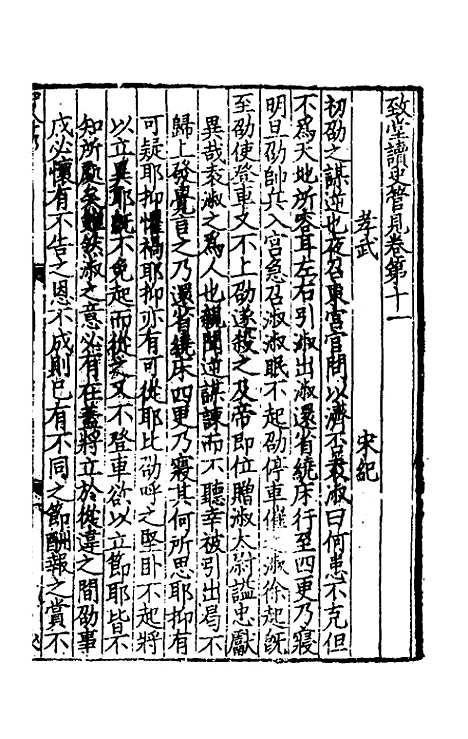 致堂讀史管見卷第十一
孝武 宋紀
初劭之謀逆也夜召東宮官問以濟否袁淑曰何患不克但
不為天地所容耳左右引淑出淑還省繞床行至四更乃寢
明旦劭帥兵入宮急召淑淑眠不起劭停車催之淑徐起旣
至劭使登車又不上劭遂殺之及帝即位贈淑太尉謚忠獻
異哉袁淑之為人也親聞逆謀諫而不聽幸被引出局不
歸上發覺言之乃還省繞床四更乃寢其何所思耶抑有
可疑耶抑懼禍耶抑亦有可從耶比劭呼之堅卧不起將
以立異耶旣不免起而從矣又不登車欲以立節耶皆不
知所處矣雖然淑之意必有在蓋將立於從違之間劭事
成必懷有不告之恩不成則已有不同之節酬報之賞不